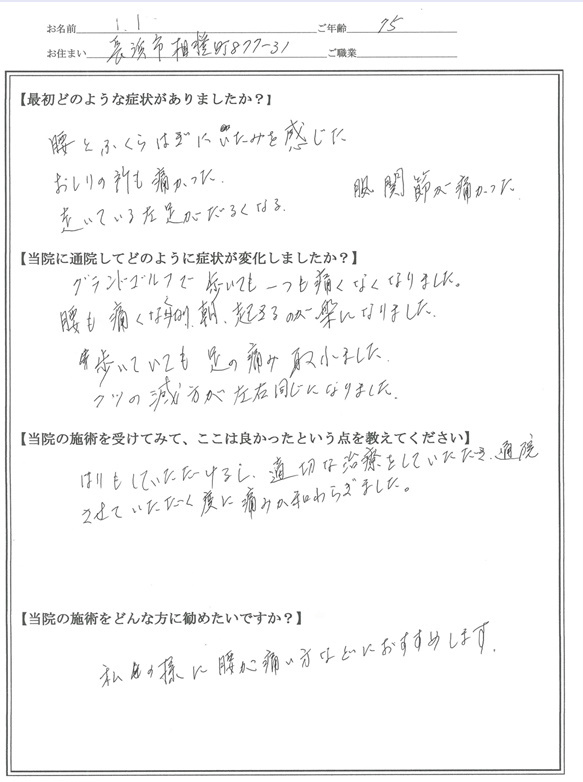 お名前 I.I ご年齢 75
お住まい 長浜市相撲町877-31 ご職業
【最初どのような症状がありましたか？】
腰とふくらはぎにいたみを感じた
おしりの所も痛かった. 股関節が痛かった.
歩いていると左足がだるくなる.
【当院に通院してどのように症状が変化しましたか？】
グランドゴルフで歩いても一つも痛くなくなりました。
腰も痛くなくなり、朝、起きるのが楽になりました.
歩いていても足の痛み取れました.
クツの減り方が左右同じになりました.
【当院の施術を受けてみて、ここは良かったという点を教えてください】
はりもしていただけるし、適切な治療をしていただき、通院
させていただく度に痛みが和わらぎました。
【当院の施術をどんな方に勧めたいですか？】
私の様に腰が痛い方などにおすすめします.